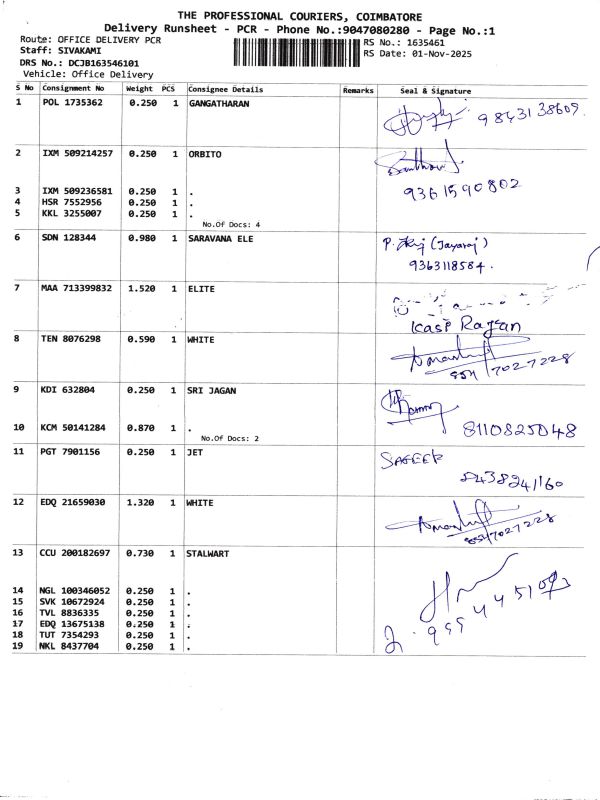 THE PROFESSIONAL COURIERS, COIMBATORE
Delivery Runsheet - PCR - Phone No.:9047080280 - Page No.:1
Route: OFFICE DELIVERY PCR RS No.: 1635461
Staff: SIVAKAMI RS Date: 01-Nov-2025
DRS No.: DCJB163546101
Vehicle: Office Delivery
S No Consignment No Weight PCS Consignee Details Remarks Seal & Signature
1 POL 1735362 0.250 1 GANGATHARAN
9843138609.
2 IXM 509214257 0.250 1 ORBITO
3 IXM 509236581 0.250 1 . 9361590802
4 HSR 7552956 0.250 1 .
5 KKL 3255007 0.250 1 .
No.Of Docs: 4
6 SDN 128344 0.980 1 SARAVANA ELE (Jayaraj)
9363118584.
7 MAA 713399832 1.520 1 ELITE
8 TEN 8076298 0.590 1 WHITE
7027228
9 KDI 632804 0.250 1 SRI JAGAN
10 KCM 50141284 0.870 1 . 8110825048
No.Of Docs: 2
11 PGT 7901156 0.250 1 JET
8438241160
12 EDQ 21659030 1.320 1 WHITE
7027228
13 CCU 200182697 0.730 1 STALWART
14 NGL 100346052 0.250 1 .
15 SVK 10672924 0.250 1 .
16 TVL 8836335 0.250 1 .
17 EDQ 13675138 0.250 1 .
18 TUT 7354293 0.250 1 .
19 NKL 8437704 0.250 1 .